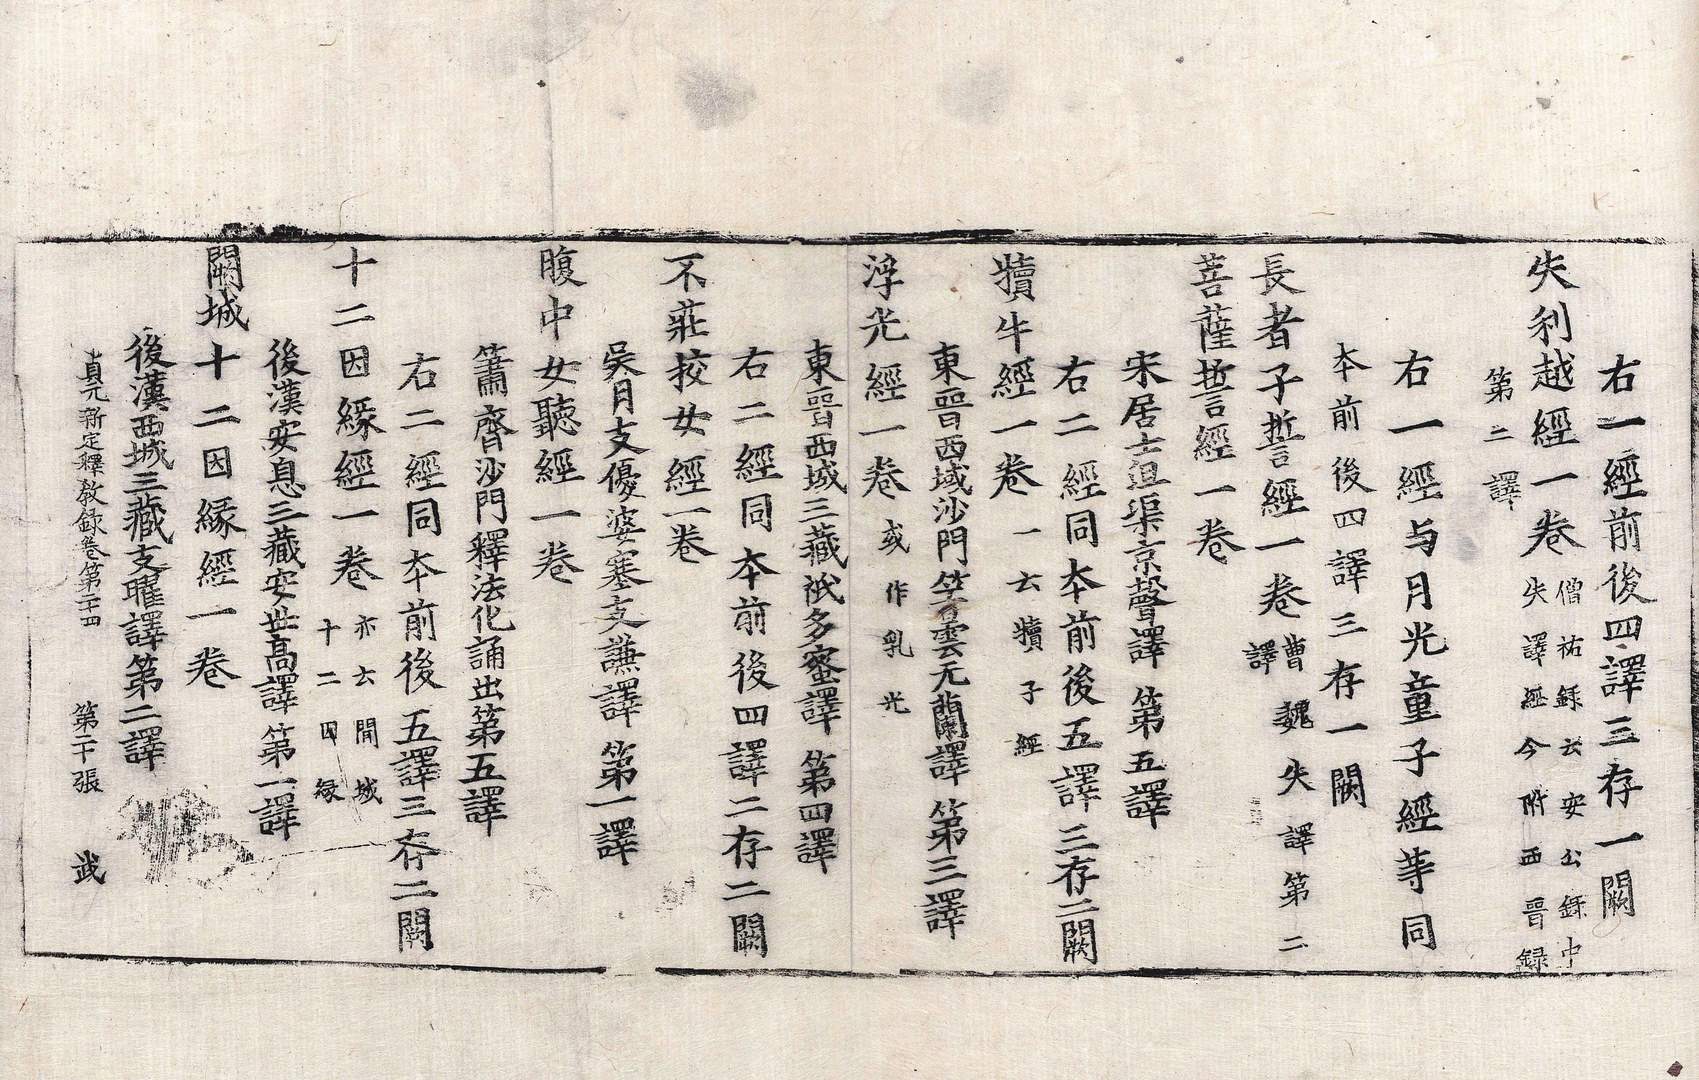 右一經前後四譯三存一闕
失利越經一卷僧祐錄云安公錄中
失譯經今附西晉錄
第二譯
右一經与月光童子經等同
本前後四譯三存一闕
長者子誓經一卷曹魏失譯第二
譯
菩薩誓經一卷
宋居士沮渠京聲譯第五譯
右二經同本前後五譯三存二闕
犢牛經一卷一云犢子經
東晉西域沙門竺曇无蘭譯第三譯
浮光經一卷或作乳光
東晉西域三藏祇多蜜譯第四譯
右二經同本前後四譯二存二闕
不莊挍女經一卷
吳月支優婆塞支謙譯第一譯
腹中女聽經一卷
簫齊沙門釋法化誦出第五譯
右二經同本前後五譯三存二闕
十二因緣經一卷亦云聞城
十二因緣
後漢安息三藏安世高譯第一譯
闕城十二因緣經一卷
後漢西域三藏支曜譯第二譯
貞元新定釋教錄卷第二十四 第二十張 武